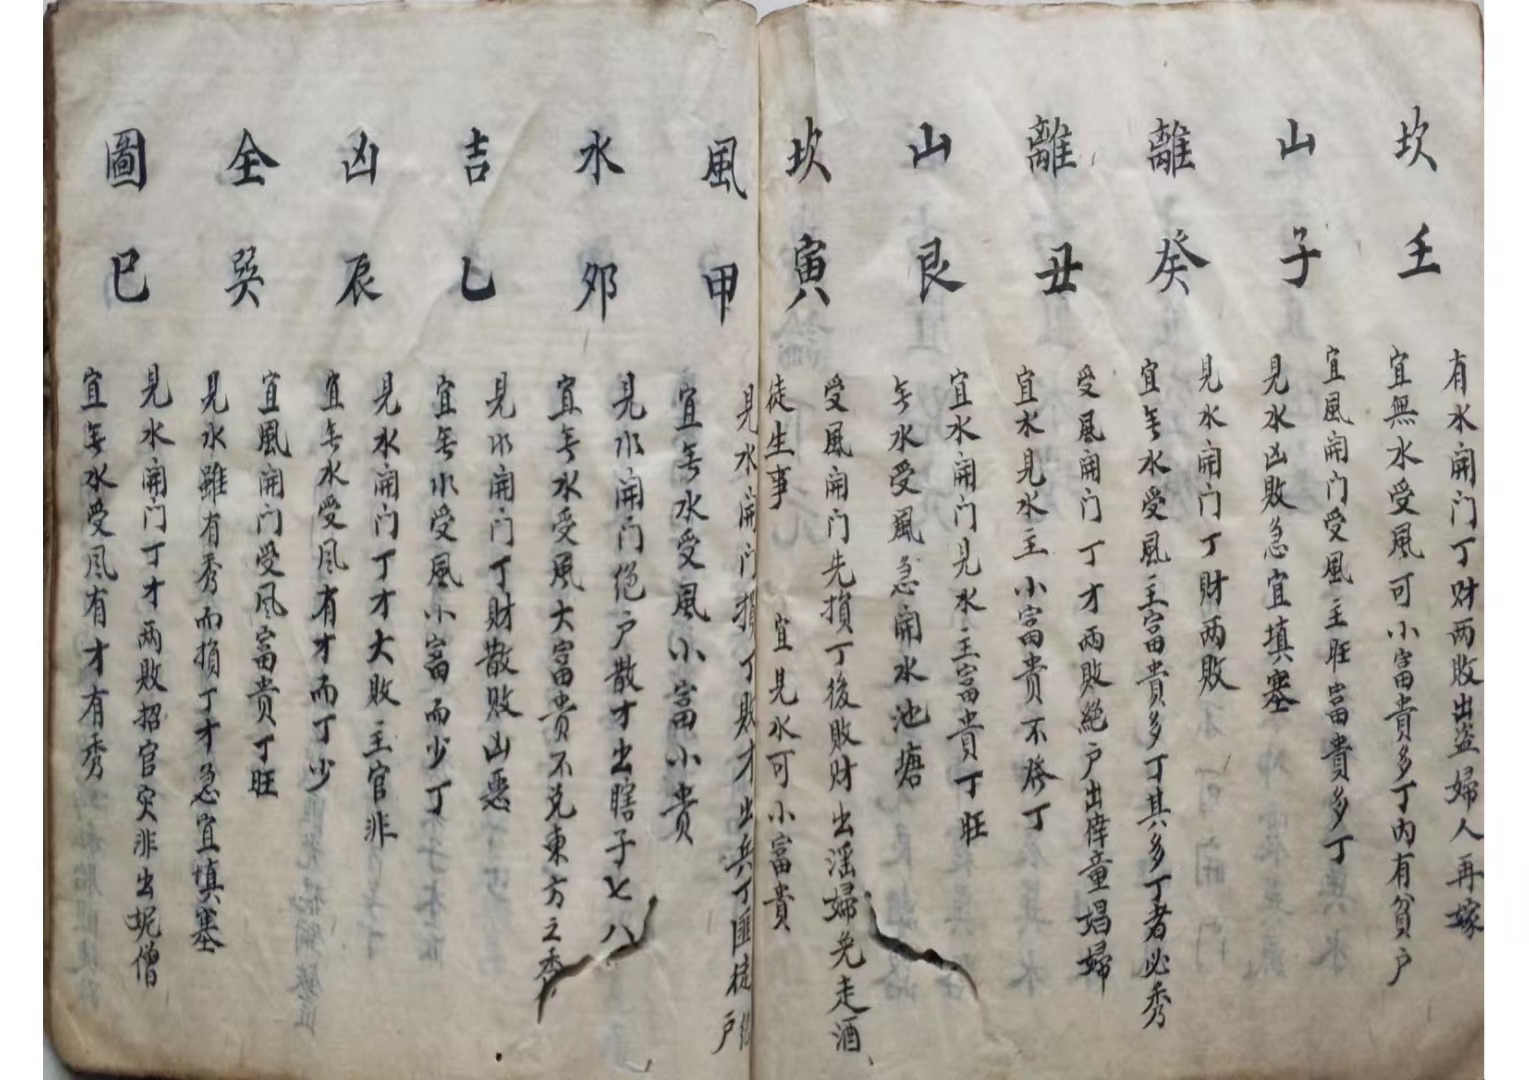 坎壬
有水開门丁财两败出盗婦人再嫁
宜無水受風可小富貴多丁内有貧户
山子
宜風開门受風主旺富貴多丁
見水凶敗急宜填塞
離癸
見水開门丁財两敗
宜无水受風主富貴多丁其多丁者必秀
離丑
受風開门丁才两敗絶户出童娼婦
宜水見水主小富貴不發丁
山艮
宜水開门見水主富貴丁旺
无水受風急開水池塘
坎寅
受風開门先損丁後敗财出滛婦免走酒
徒生事 宜見水可小富貴
風甲
見水開门損丁敗才出兵丁匪徒户
宜无水受風小富小貴
水夘
見水開门绝户散才出瞎子七八
宜无水受風大富貴不兑東方之秀
吉乙
見水開门丁財散敗凶惡
宜无水受風小富而少丁
凶辰
見水開门丁才大敗主官非
宜无水受风有才而丁少
全巽
宜風開门受风富貴丁旺
見水雖有秀而損丁才急宜填塞
圖巳
見水開门丁才两敗招官灾非出妮僧
宜无水受风有才有秀